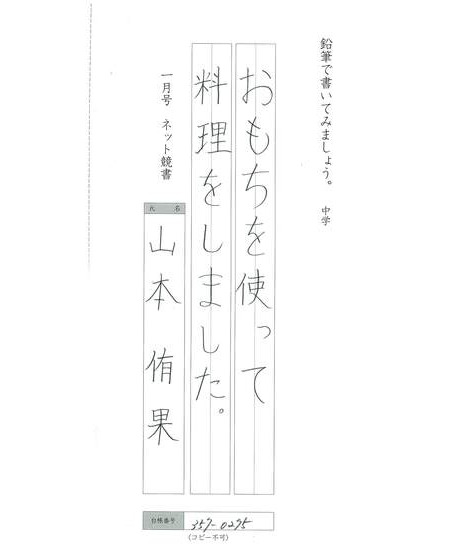 鉛筆で書いてみましょう。 中学
おもちを使って
料理をしました。
一月号 ネット競書
氏 名
山本 侑果
台帳番号 357-0275
(コピー不可)